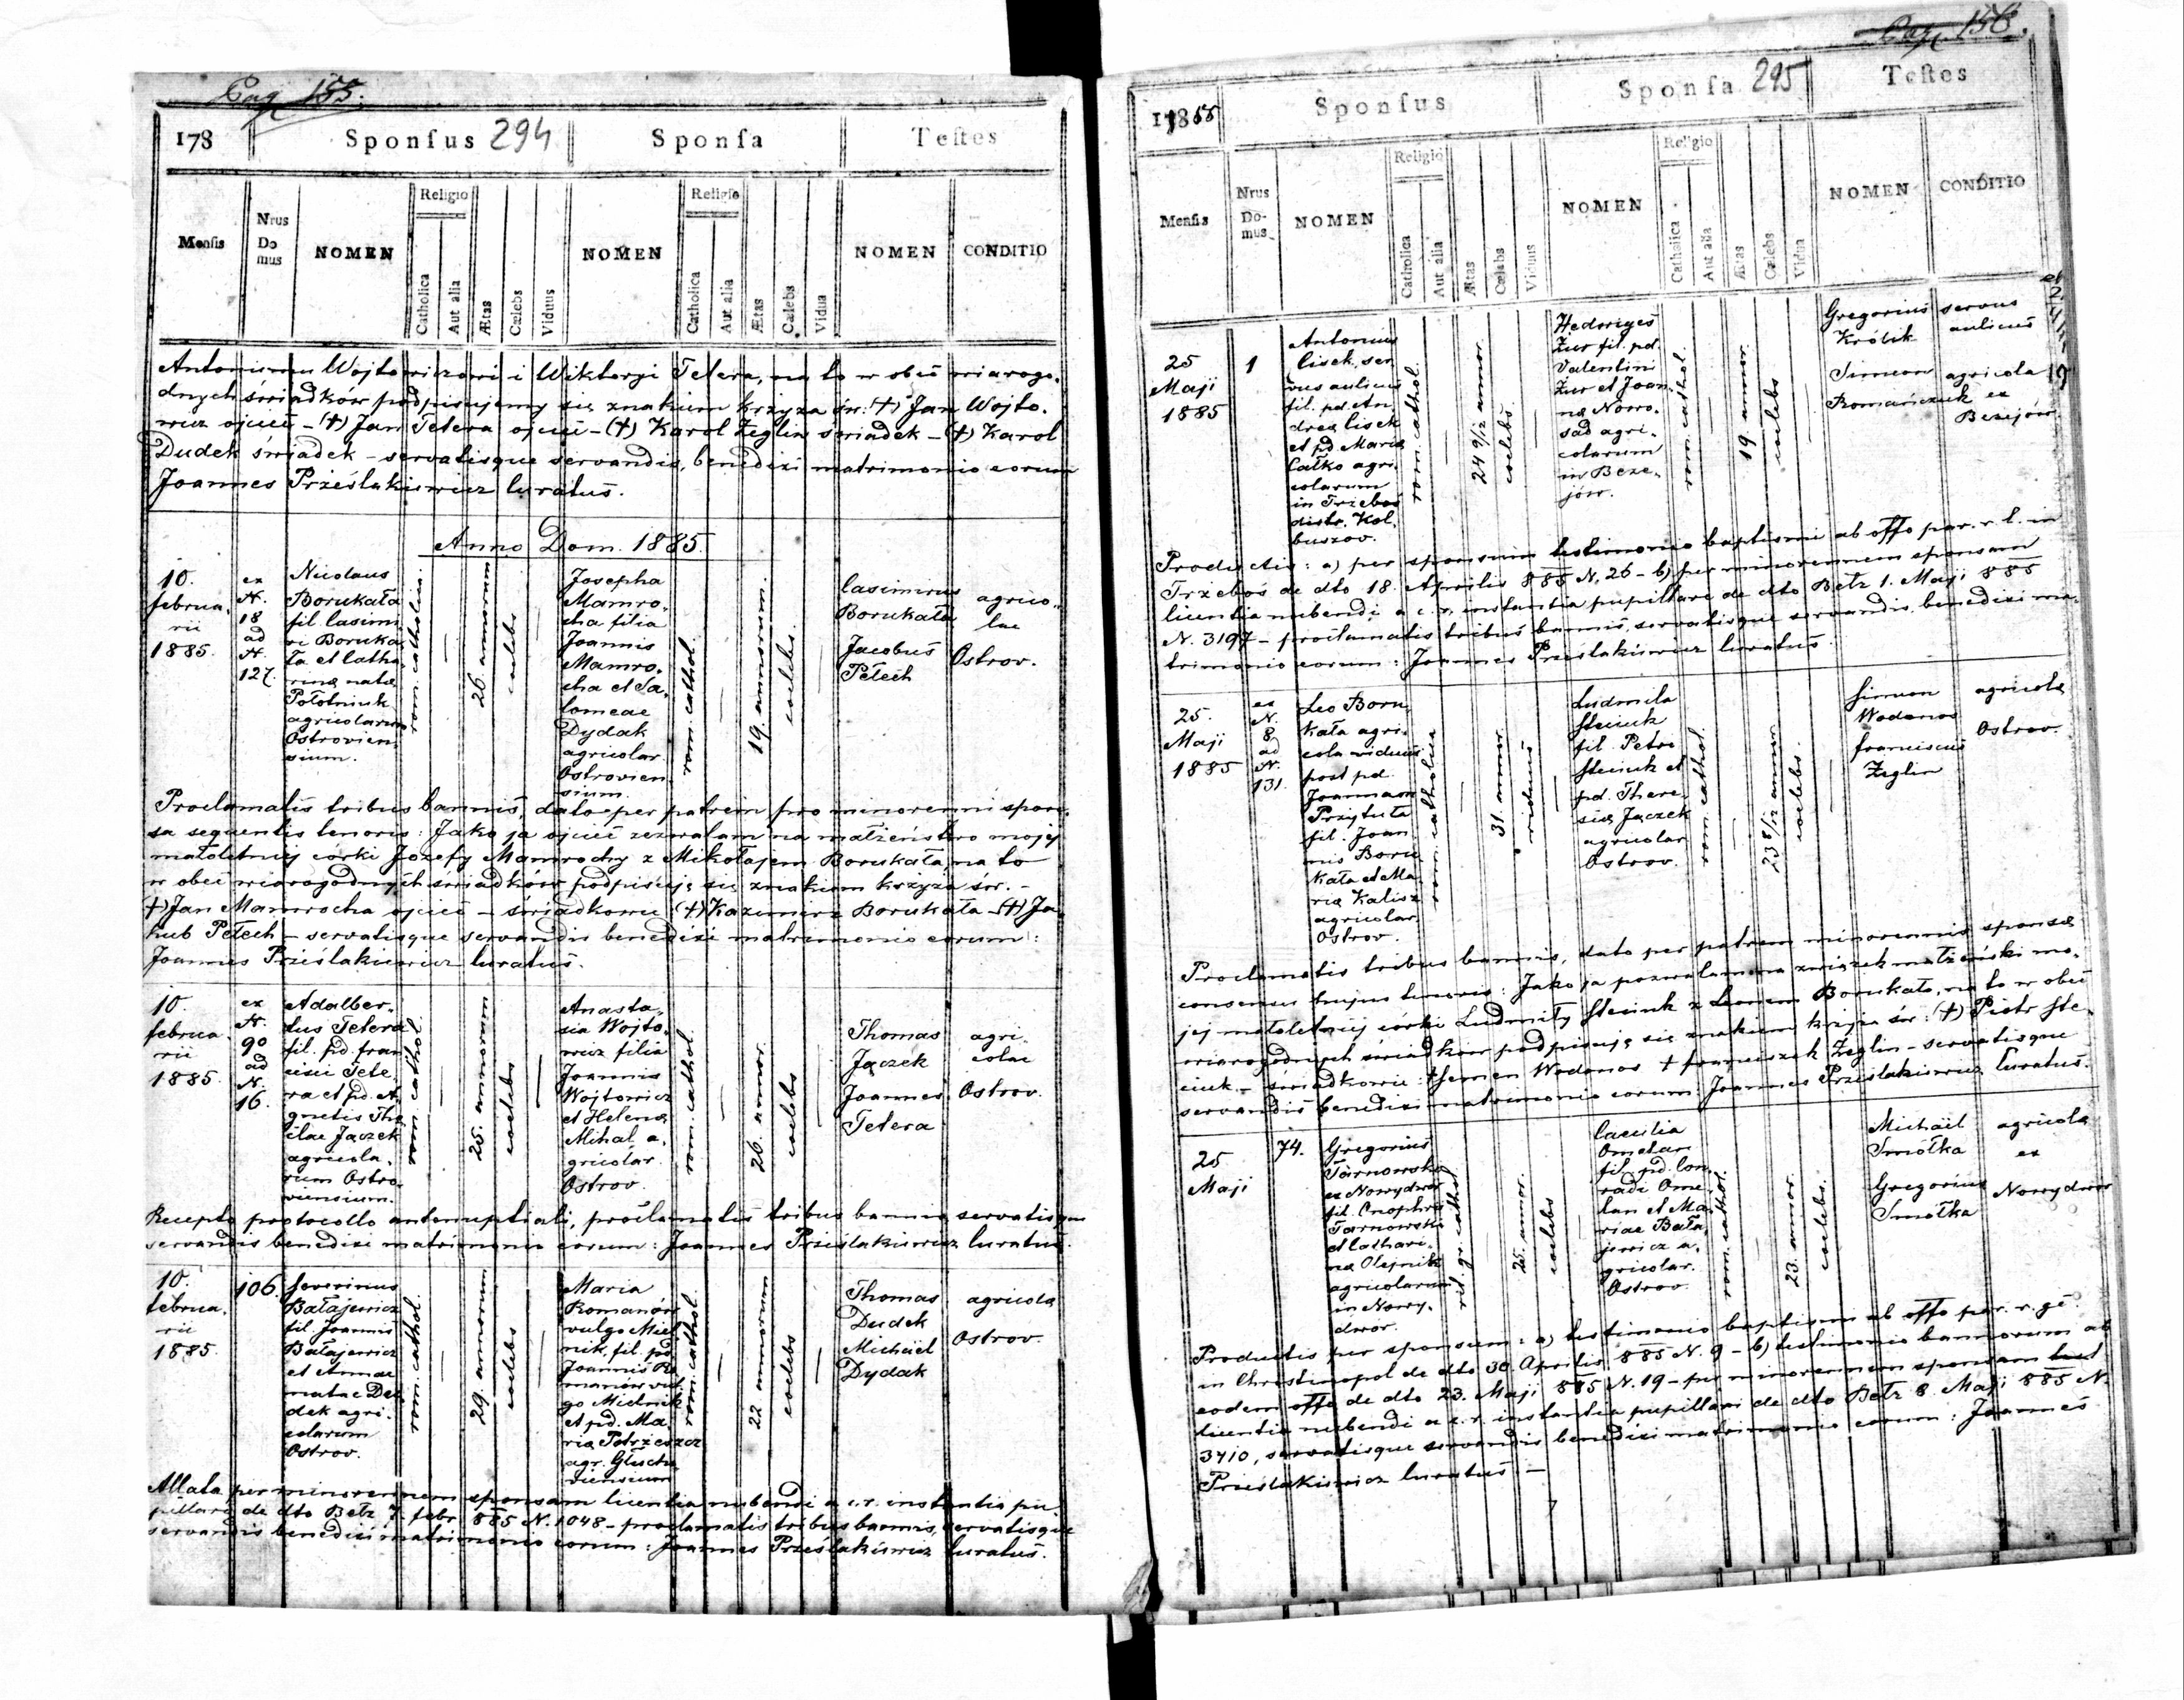 Pag 155.
178
Sponsus 294
Sponsa
Testes
Mensis
Nrus
Do
mus
NOMEN
Religio
Catholica
Aut alia
Ætas
Cœlebs
Viduus
NOMEN
Religio
Catholica
Aut alia
Ætas
Cœlebs
Vidua
NOMEN
CONDITIO
Antoniemu Wojtowiczowi i Wiktoryi Tetera, na to w obec wiarogo-
dnych świadków podpisujemy się znakiem krzyża św: (+) Jan Wojto-
wicz ojciec - (+) Jan Tetera ojciec - (+) Karol Żeglin świadek - (+) Karol
Dudek świadek - servatisque servandis, benedixi matrimonio eorum
Joannes Prześlakiewicz Curatus.
Anno Dom. 1885.
10.
februa-
rii
1885.
ex
N.
18
ad
N.
127.
Nicolaus
Borukała
fil. Casimi-
ri Boruka
ła et Catha-
rina nata
Połotniuk
agricolarum
Ostrovien-
sium.
rom. catholica.
26. annorum
coelebs
Josepha
Mamro-
cha filia
Joannis
Mamro-
cha et Sa-
lomeae
Dydak
agricolar.
Ostrovien
sium.
rom. cathol.
19. annorum.
coelebs.
Casimirus
Borukała
Jacobus
Petech
agrico-
lae
Ostrov.
Proclamatis tribus bannis, dato per patrem pro minorenni spon-
sa sequentis tenoris: Jako ja ojciec zezwalam na małżeństwo mojej
małoletniej córki Józefy Mamrochy z Mikołajem Borukała, na to
w obec wiarogodnych świadków podpisuję się znakiem krzyża św. -
(+) Jan Mamrocha ojciec - świadkowie (+) Kazimierz Borukała - (+) Ja-
kub Petech - servatisque servandis benedixi matrimonio eorum:
Joannes Prześlakiewicz Curatus.
10
februa-
rii
1885.
ex
N.
90
ad
N.
16.
Adalber-
tus Tetera
fil. pd. fran-
cisci Tete-
ra et pd. A-
gnetis The-
clae Jączek
agricola-
rum Ostro-
viensium.
rom. cathol.
25. annorum
coelebs
Anasta-
sia Wojto-
wicz filia
Joannis
Wojtowicz
et Helena
Mihal, a-
gricolar.
Ostrov.
rom. cathol.
26. annor.
coelebs
Thomas
Jączek
Joannes
Tetera
agri-
colae
Ostrov.
Recepto protocollo antenuptiali, proclamatis tribus bannis servatisque
servandis benedixi matrimonio eorum: Joannes Prześlakiewicz Curatus.
10.
februa-
rii
1885.
106.
Severinus
Bałajewicz
fil. Joannis
Bałajewicz
et Annae
natae Du-
dek agri-
colarum
Ostrov.
rom. cathol.
29. annorum
coelebs
Maria
Romanów
vulgo Miel
nik, fil. pd.
Joannis Ro
manów vul
go Mielnik
et pd. Ma
ria Petrzescz
agr. Głucho
viensium
rom. cathol.
22 annorum
coelebs
Thomas
Dudek
Michäel
Dydak
agricola
Ostrov.
Allata per minorennem sponsam licentia nubendi a c.r. instantia pu-
pillari de dto Betz 7. febr. 885 N. 1048 - proclamatis tribus bannis, servatisque
servandis benedixi matrimonio eorum: Joannes Prześlakiewicz Curatus.
Pag 156.
1885
Sponsus
Sponsa 295
Testes
Mensis
Nrus
Do-
mus
NOMEN
Religio
Catholica
Aut alia
Ætas
Cœlebs
Viduus
NOMEN
Religio
Catholica
Aut alia
Ætas
Cœlebs
Vidua
NOMEN
CONDITIO
25
Maji
1885
1
Antonius
Lisek, ser-
vus aulicus
fil. pd. An
drea Lisek
et pd Maria
Całko agri-
colarum
in Trzeboś
distr. Kol-
buszov.
rom. cathol.
24 9/12 annor.
coelebs
Hedviges
Żur fil. pd.
Valentini
Żur et Joan
na Nowo-
sad agri-
colarum
in Beze-
jów.
rom. cathol.
19. annor.
coelebs
Gregorius
Królik
Simeon
Romańczuk
servus
aulicus
agricola
ex
Bezejów
Productis: a) per sponsum testimonio baptismi ab offo par. r. l. in
Trzeboś de dto 18. Aprilis 885 N. 26 - b) per minorennem sponsam
licentia nubendi a c.r. instantia pupillari de dto Betz 1. Maji 885
N. 3197 - proclamatis tribus bannis, servatisque servandis, benedixi ma-
trimonio eorum: Joannes Prześlakiewicz Curatus.
25.
Maji
1885
ex
N.
8
ad
N.
131.
Leo Boru
kała agri-
cola viduus
post pd.
Joannam
Przytuła
fil. Joan
nis Boru
kała et Ma
ria Kalisz
agricolar.
Ostrov.
rom. catholica
31. annor.
viduus
Ludmila
Steciuk
fil. Petri
Steciuk et
pd. There-
sia Jączek
agricolar
Ostrov.
rom. cathol.
23 8/12 annor.
coelebs.
Simeon
Wodonos
franciscus
Żeglin
agricola
Ostrov.
Proclamatis tribus bannis, dato per patrem minorennis sponsa
consensu hujus tenoris: Jako ja pozwalam na związek małżeński mo-
jej małoletniej córki Ludmiły Steciuk z Leonem Borukało, na to w obec
wiarogodnych świadków podpisuję się znakiem krzyża św: (+) Piotr Ste-
ciuk - świadkowie: +Semen Wodonos + franciszek Żeglin - servatisque
servandis benedixi matrimonio eorum: Joannes Prześlakiewicz Curatus.
25
Maji
74.
Gregorius
Tarnowski
ex Nowydwór
fil. Onophri
Tarnowski
et Cathari-
na Olejnik
agricolarum
in Nowy-
dwór.
rit. gr. cathol.
25. annor.
coelebs
Caecilia
Omelan
fil. pd. Con-
radi Ome-
lan et Ma-
riae Bała-
jewicz a-
gricolar.
Ostrov.
rom. cathol.
23. annor.
coelebs.
Michäel
Smółka
Gregorius
Smółka
agricola
ex
Nowydwór
Productis per sponsum: a) testimonio baptismi ab offo par. r. gc.
in Christinopol de dto 30. Aprilis 885 N. 9 - b) testimonio bannorum ab
eodem offo de dto 23. Maji 885 N. 19 - per minorennem sponsam
licentia nubendi a c.r. instantia pupillari de dto Betz 8. Maji 885 N.
3410, servatisque servandis benedixi matrimonio eorum: Joannes
Prześlakiewicz Curatus. -